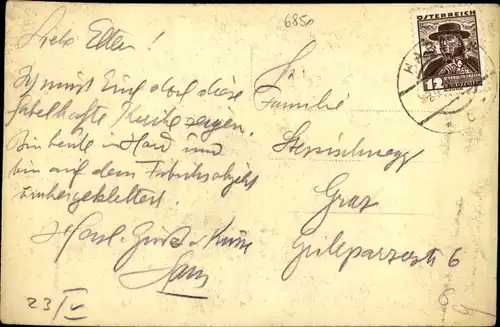 6850
Liebe Eltern!
Ich muss Euch doch diese
fabelhafte Kirche zeigen.
Bin heute in Hard und
bin auf dem Fabriksobjekt
umhergeklettert.
Herzl. Grüße u. Küsse
Hans
23/IV
ÖSTERREICH
12
HARD
Familie
Graz
Grillparzerstr. 6